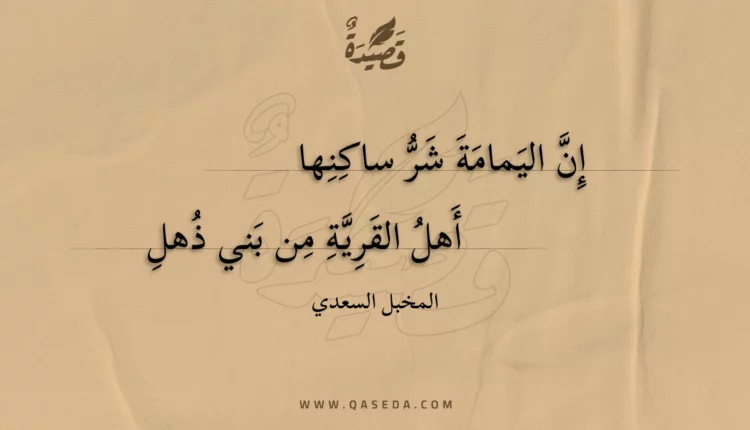 قَصِيدَةٌ
إِنَّ اليَمامَةَ شَرُّ ساكِنِها
أَهلُ القَرِيَّةِ مِن بَني ذُهلِ
المخبل السعدي
WWW.QASEDA.COM